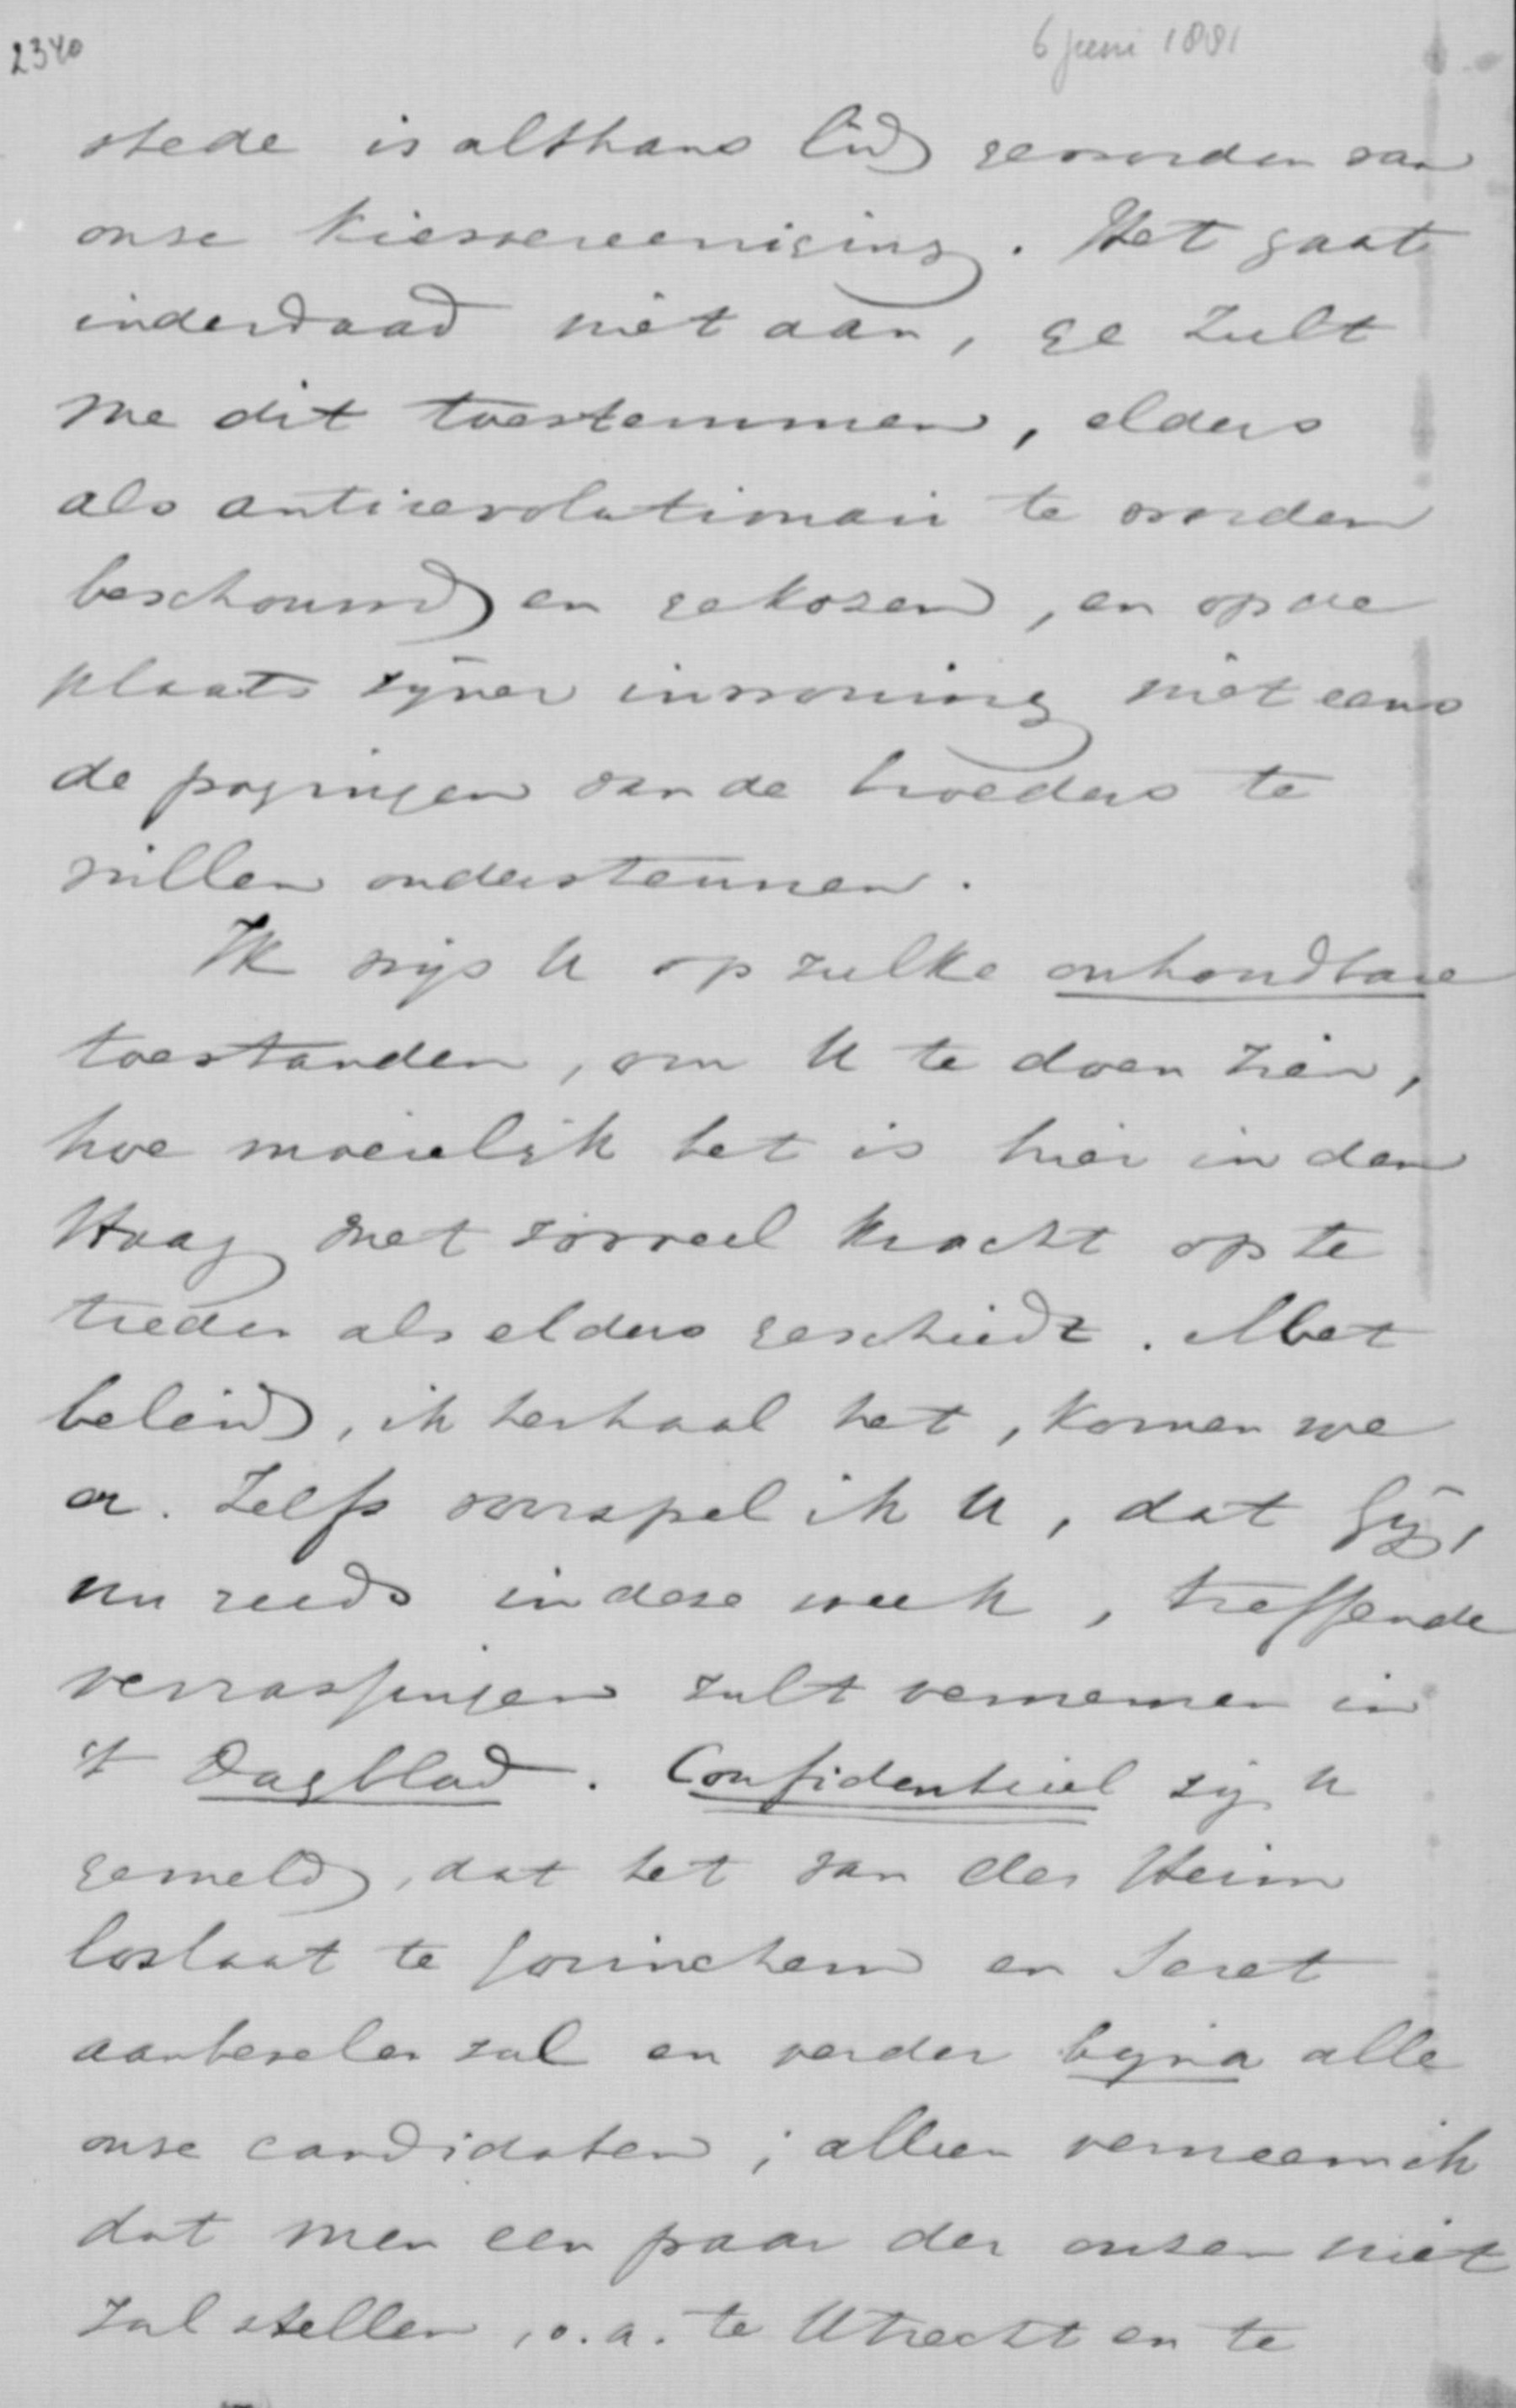 2340
6 juni 1881
stede is althans lid geworden van
onze kiesvereeniging. Het gaat
inderdaad niet aan, ge zult
me dit toestemmen, elders
als antirevolutionair te worden
beschouwd en gekozen, en op de
plaats zyner inwoning niet eens
de pogingen van de broeders te
willen ondersteunen.
Ik wijs U op zulke onhoudbare
toestanden, om U te doen zien,
hoe moeielijk het is hier in den
Haag met zooveel kracht op te
treden als elders geschiedt. Met
beleid, ik herhaal het, komen we
er. Zelfs voorspel ik U, dat Gij,
nu reeds in deze week, treffende
verrassingen zult vernemen in
't Dagblad. Confidentieel zij U
gemeld, dat het van der Heim
loslaat te Gorinchem en Seret
aanbevelen zal en verder byna alle
onze candidaten; alleen verneem ik
dat men een paar der onzen niet
zal stellen, o.a. te Utrecht en te